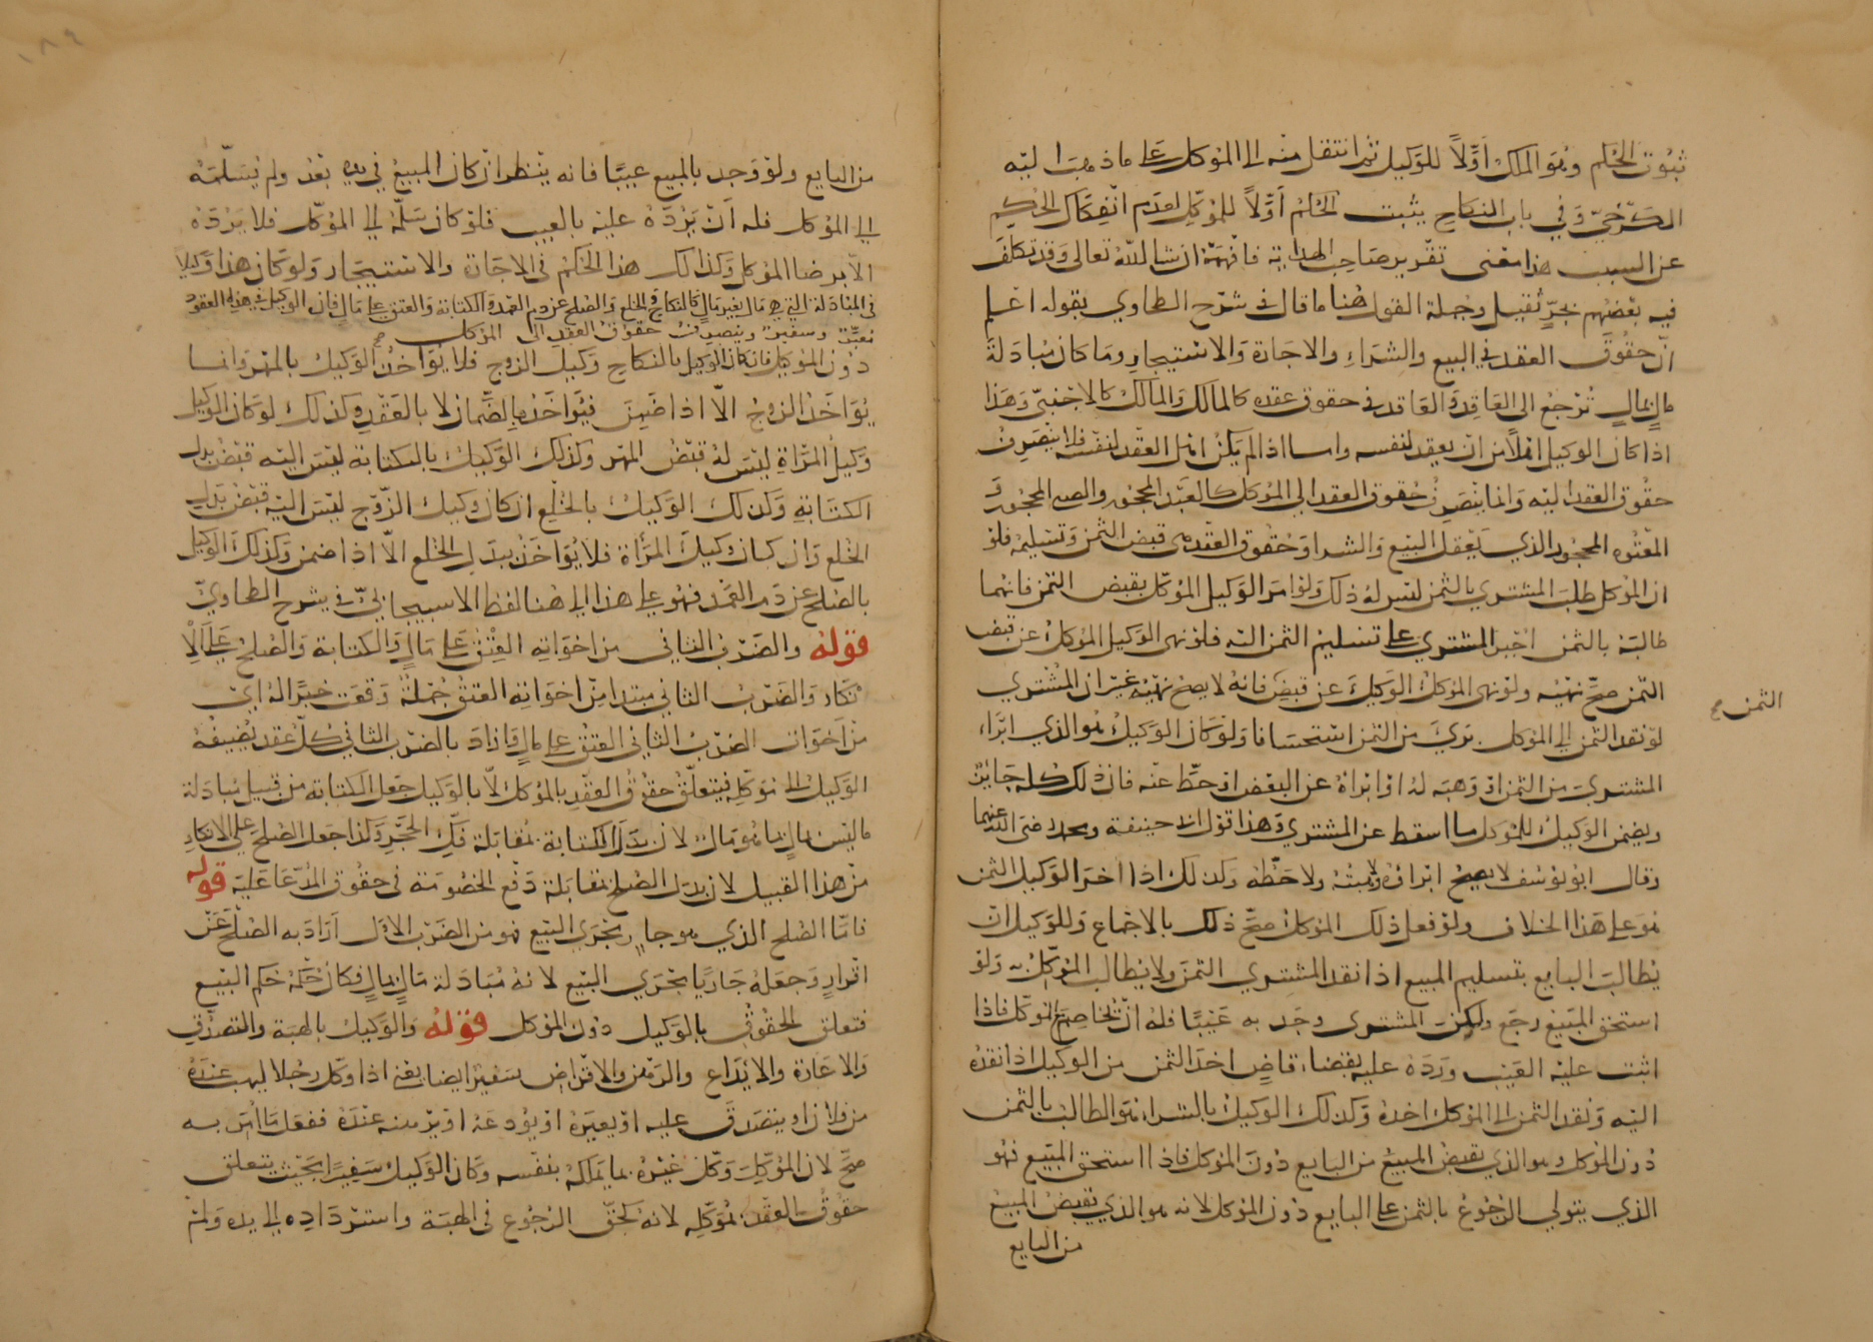 ثبوت الحكم وهو الملك أولاً للوكيل ثم انتقل منه الى الموكل على ما ذهب اليه
الكرخي وفي باب النكاح يثبت الحكم أولاً للموكل لعدم انفكاك الحكم
عن السبب هذا معنى تقرير صاحب الهداية فافهمه ان شا الله تعالى وقد تكلف
فيه بعضهم بجر ثقيل وجملة القول هنا ما قال في شرح الطحاوي بقوله اعلم
ان حقوق العقد في البيع والشراء والاجارة والاستيجار وما كان مبادلة
مال بمال ترجع الى العاقد والعاقد في حقوق عقده كالمالك والمالك كالاجنبي وهذا
اذا كان الوكيل اهلا من ان يعقد لنفسه واما اذا لم يكن اهل العقد لنفسه فلا تنصرف
حقوق العقد اليه وانما تنصرف حقوق العقد الى الموكل كالعبد المحجور والصبي المحجور و
المعتوه المحجور الذي يعقل البيع والشرا وحقوق العقد هي قبض الثمن وتسليمه فلو
ان الموكل طلب المشتري بالثمن ليس له ذلك ولو امر الوكيل الموكل بقبض الثمن فانهما
طالبه بالثمن اجبر المشتري على تسليم الثمن اليه فلو نهى الوكيل الموكل عن قبض
الثمن صح نهيه ولو نهى الموكل الوكيل عن قبض فانه لا يصح نهيه غير ان المشتري
الثمن صح
لو نقد الثمن الى الموكل برئ من الثمن استحسانا ولو كان الوكيل هو الذي ابراء
المشتري من الثمن او وهبه له او ابراه عن البعض او حط عنه فان ذلك كله جايز
ويضمن الوكيل للموكل ما اسقط عن المشتري وهذا قول ابي حنيفة ومحمد رضي الله عنهما
وقال ابو يوسف لا يصح ابراؤه ولا هبته ولا حطه وكذلك اذا اخر الوكيل الثمن
فهو على هذا الخلاف ولو فعل ذلك الموكل صح ذلك بالاجماع وللوكيل ان
يطالب البايع بتسليم المبيع اذا نقد المشتري الثمن ولا يطالب الموكل ولو
استحق المبيع رجع ولو ان المشتري وجد به عيبا فله ان يخاصم الموكل فاذا
اثبت عليه العيب ورده عليه بقضاء قاض اخذ الثمن من الوكيل اذا نقده
اليه ونقد الثمن الى الموكل اخذه وكذلك الوكيل بالشراء هو الطالب بالثمن
دون الموكل وهو الذي يقبض المبيع من البايع دون الموكل فاذا استحق المبيع فهو
الذي يتولى الرجوع بالثمن على البايع دون الموكل لانه هو الذي يقبض المبيع
من البايع
من البايع ولو وجد بالمبيع عيبا فانه ينظر ان كان المبيع في يده بعد ولم يسلمه
الى الموكل فله ان يرده عليه بالعيب فلو كان سلمه الى الموكل فلا يرده
الا برضا الموكل وكذلك هذا الحكم في الاجارة والاستيجار ولو كان هذا وكيلا
في المبادلة التي هي مال بغير مال كالنكاح والخلع والصلح عن دم العمد والكتابة والعتق على مال فان الوكيل في هذه العقود
معبر وسفير وينصرف حقوق العقد الى الموكل صح
دون الموكل فان كان الوكيل بالنكاح وكيل الزوج فلا يؤاخذ الوكيل بالمهر وانما
يؤاخذ الزوج الا اذا ضمن فيؤاخذ بالضمان لا بالعقد وكذلك لو كان الوكيل
وكيل المراة ليس له قبض المهر وكذلك الوكيل بالكتابة ليس اليه قبض بدل
الكتابة وكذلك الوكيل بالخلع ان كان وكيل الزوج ليس اليه قبض بدل
الخلع وان كان وكيل المرأة فلا يؤاخذ ببدل الخلع الا اذا ضمن وكذلك الوكيل
بالصلح عن دم العمد فهو على هذا الى هنا لفظ الاسبيجابي في شرح الطحاوي
قوله والضرب الثاني من اخواته العتق على مال والكتابة والصلح على الا
نكار والضرب الثاني مبتدا من اخواته العتق جملة وقعت خبرا له اي
من اخوات الضرب الثاني العتق على مال واراد بالضرب الثاني كل عقد يضيفه
الوكيل الى موكله فيتعلق حقوق العقد بالموكل لا بالوكيل جعل الكتابة من قبيل مبادلة
ما ليس بمال بما هو مال لان بدل الكتابة بمقابلة فك الحجر وكذا جعل الصلح على الانكار
من هذا القبيل لان بدل الصلح بمقابلة دفع الخصومة في حقوق المدعا عليه قوله
فاما الصلح الذي هو جار مجرى البيع فهو من الضرب الاول اراد به الصلح عن
اقرار وجعله جاريا مجرى البيع لانه مبادلة مال بمال فكان حكمه حكم البيع
فتعلق الحقوق بالوكيل دون الموكل قوله والوكيل بالهبة والتصدق
والاعارة والايداع والرهن والاقراض سفير ايضا يعني اذا وكل رجلا ليهب عنده
من فلان او يتصدق عليه او يعيره او يودعه او يرهنه عنده ففعل ما امر به
صح لان الموكل وكل غيره بما يملكه بنفسه وكان الوكيل سفيرا بحيث يتعلق
حقوق العقد بموكله لانه لحق الرجوع في الهبة واسترداده الى يده ولم